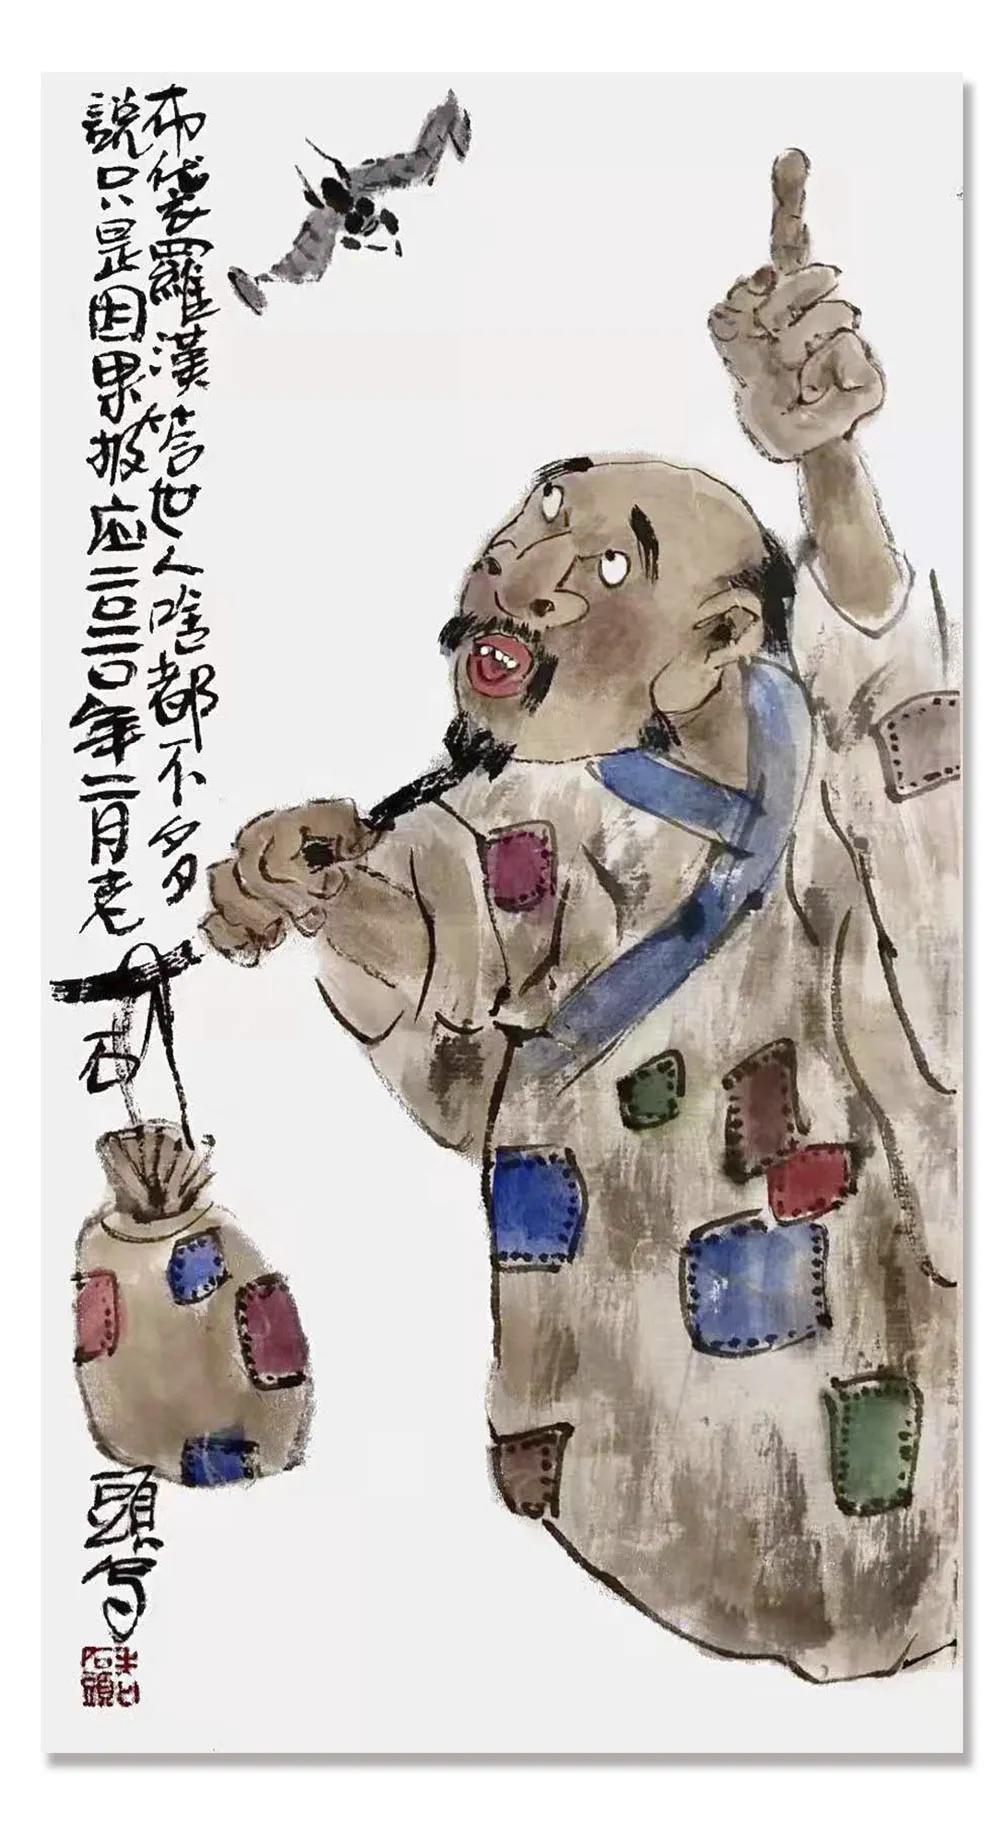 布袋羅漢答世人啥都不多
說只是因果报应二〇二〇年二月老石頭写
石頭